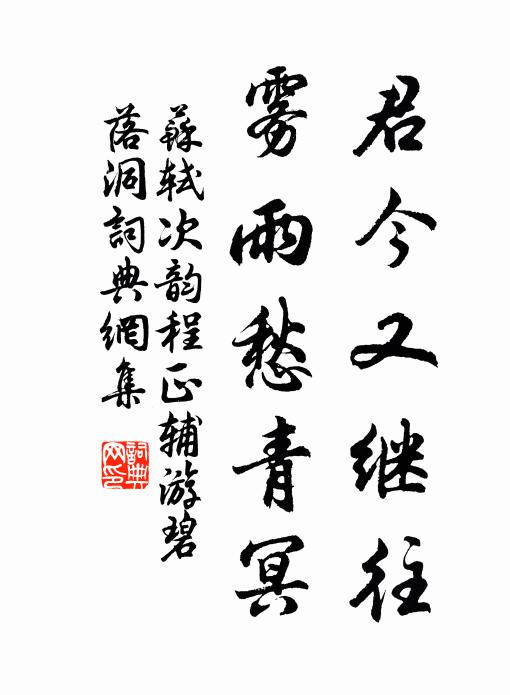 君今又继往
雾雨愁青冥
蘇轼次韵程正辅游碧
落洞詞典網集
詞典网印